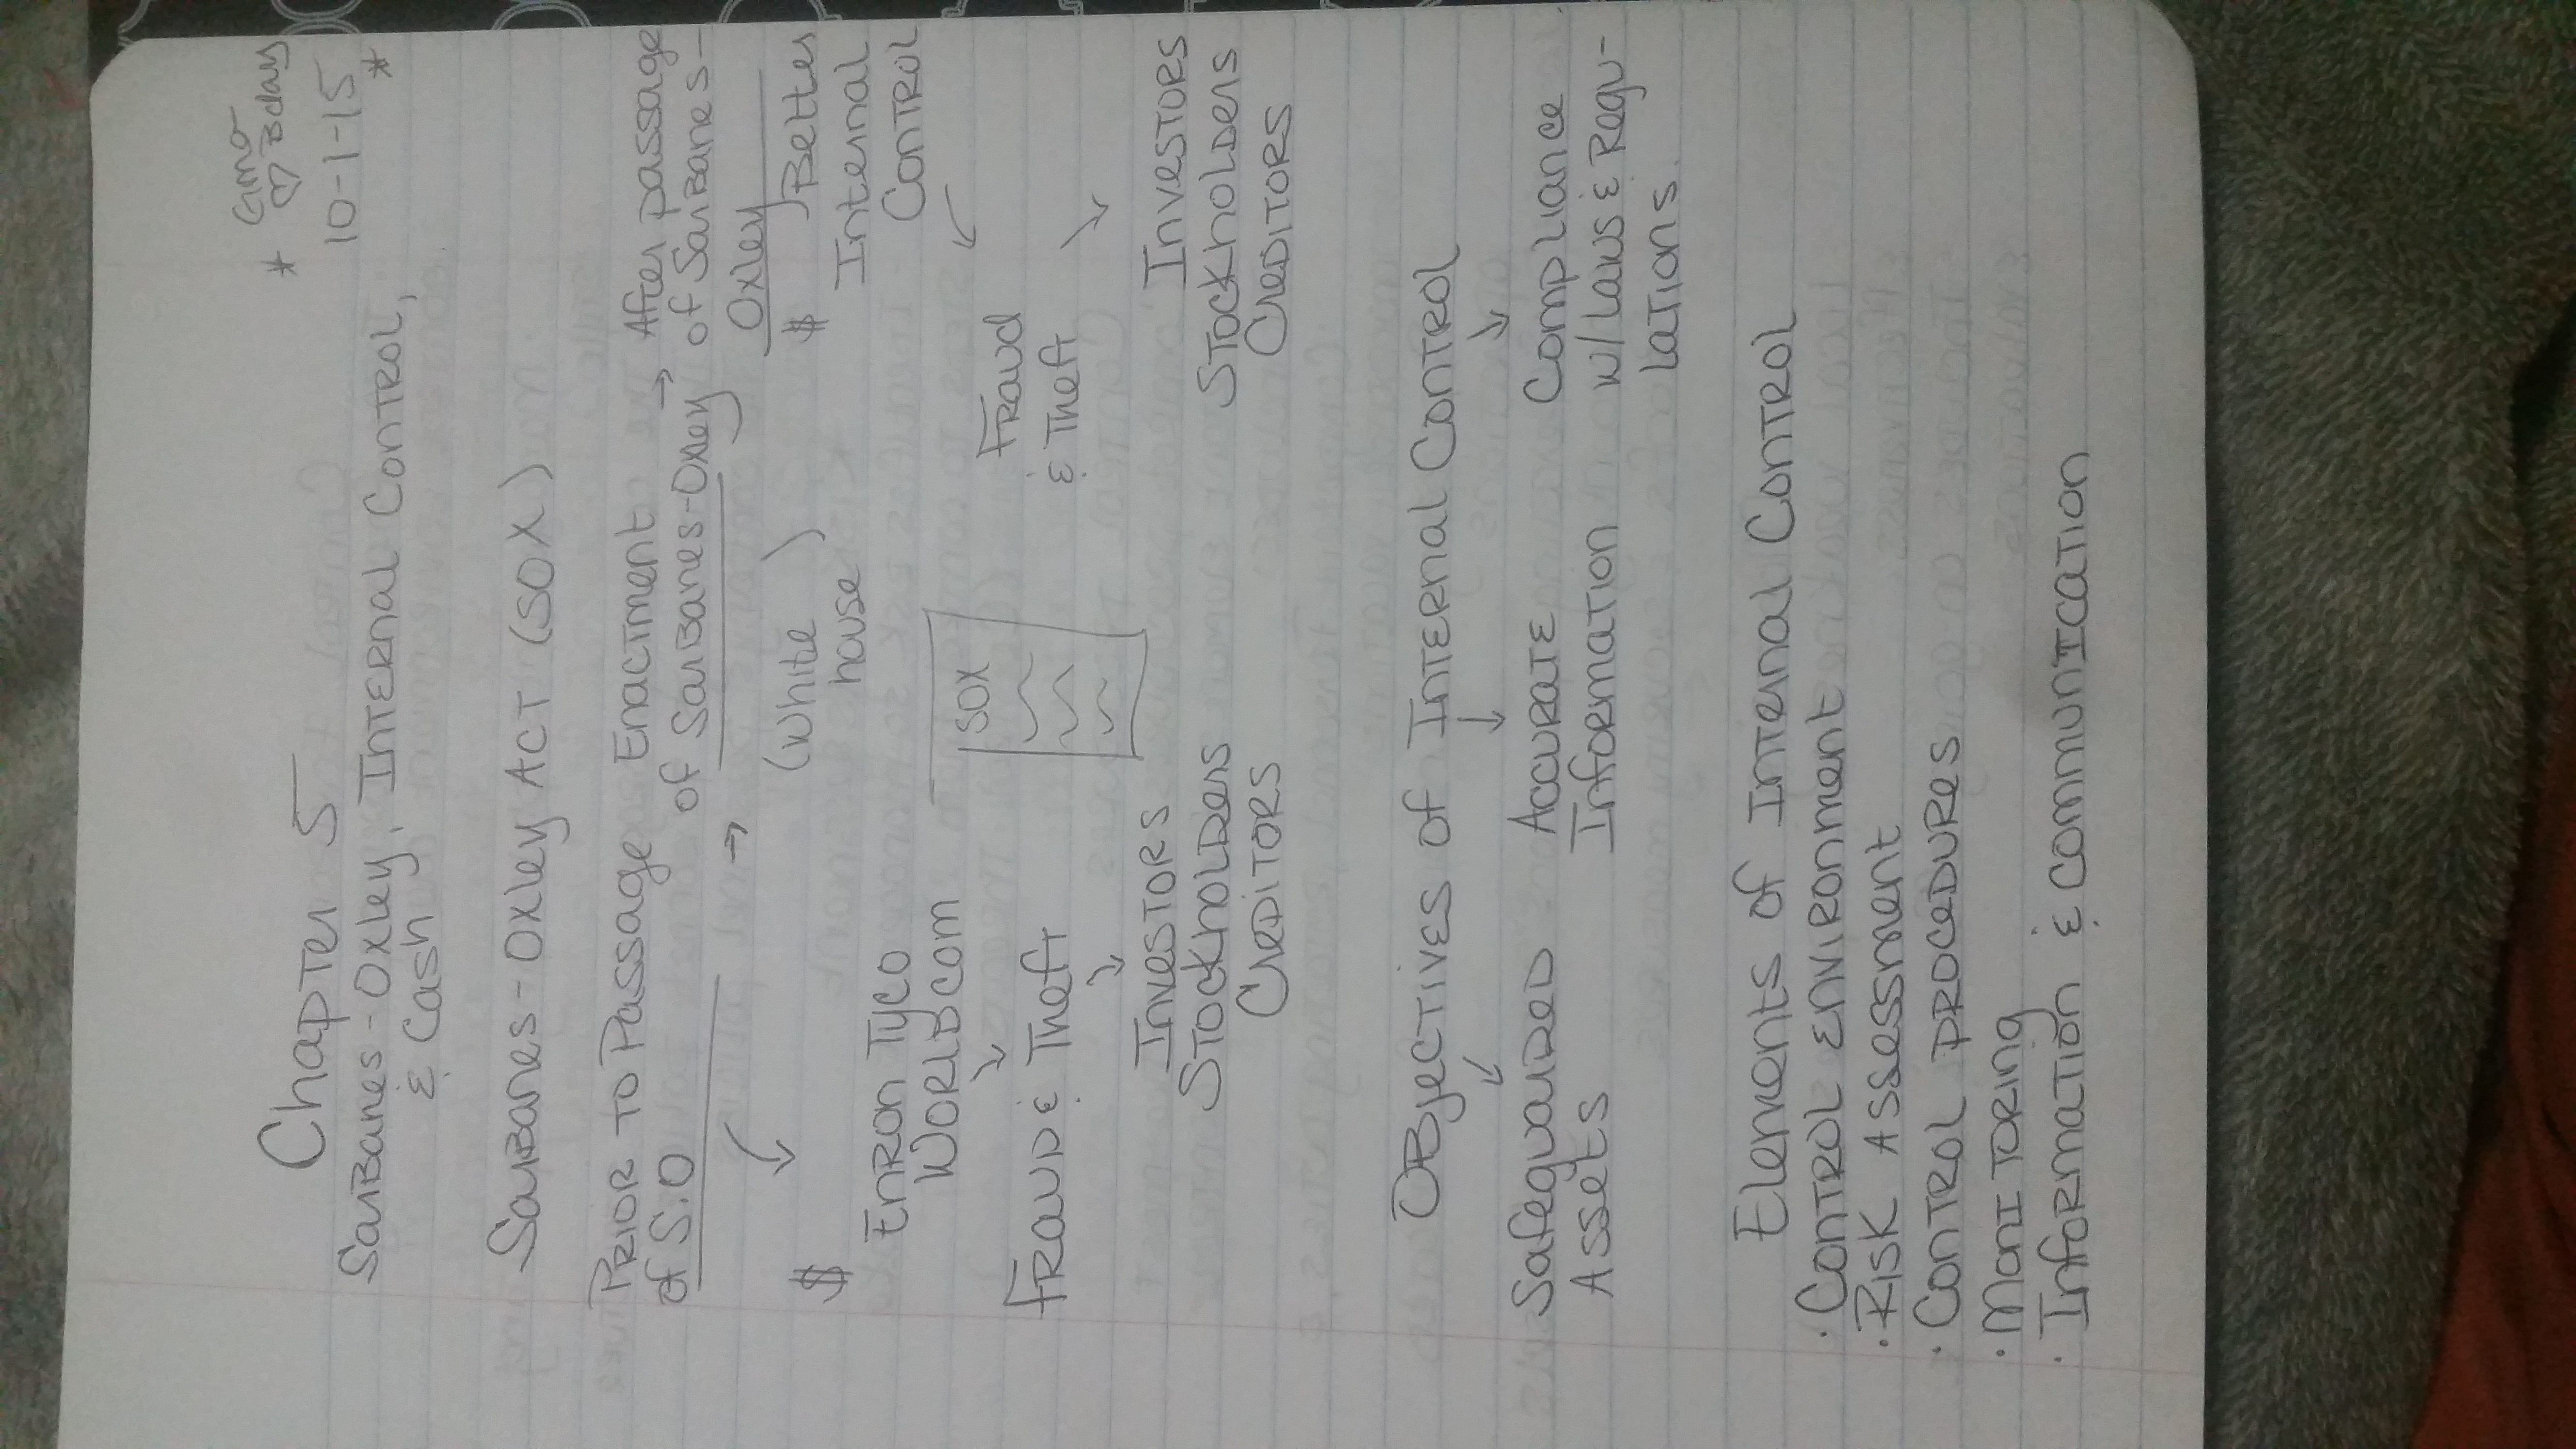 * Gmo
♡ Bday
10-1-15 *
Chapter 5
Sarbanes-Oxley, Internal Control,
& Cash
Sarbanes-Oxley Act (SOX)
Prior to Passage
of S.O
Enactment
of Sarbanes-Oxley
→ After passage
of Sarbanes-
Oxley
$
Enron Tyco
Worldcom
Fraud & Theft
Investors
Stockholders
Creditors
(White
house)
SOX
$ Better
Internal
Control
Fraud
& Theft
Investors
Stockholders
Creditors
Objectives of Internal Control
Safeguared
Assets
Accurate
Information
Compliance
w/Laws & Regu-
lations.
Elements of Internal Control
· Control environment
· Risk Assessment
· Control procedures
· Monitoring
· Information & communication